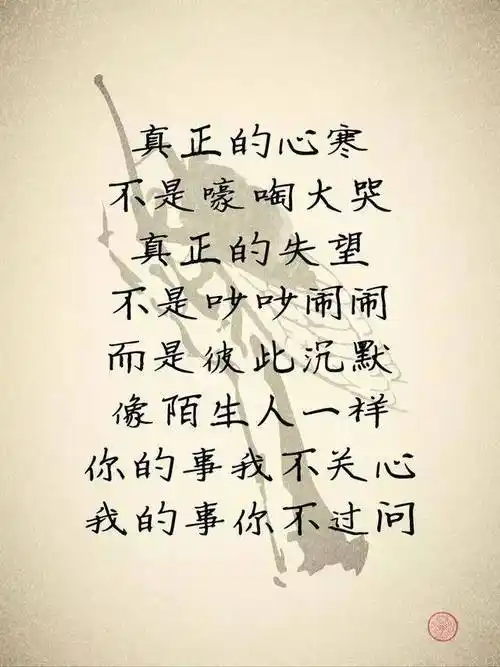 真正的心寒
不是嚎啕大哭
真正的失望
不是吵吵闹闹
而是彼此沉默
像陌生人一样
你的事我不关心
我的事你不过问